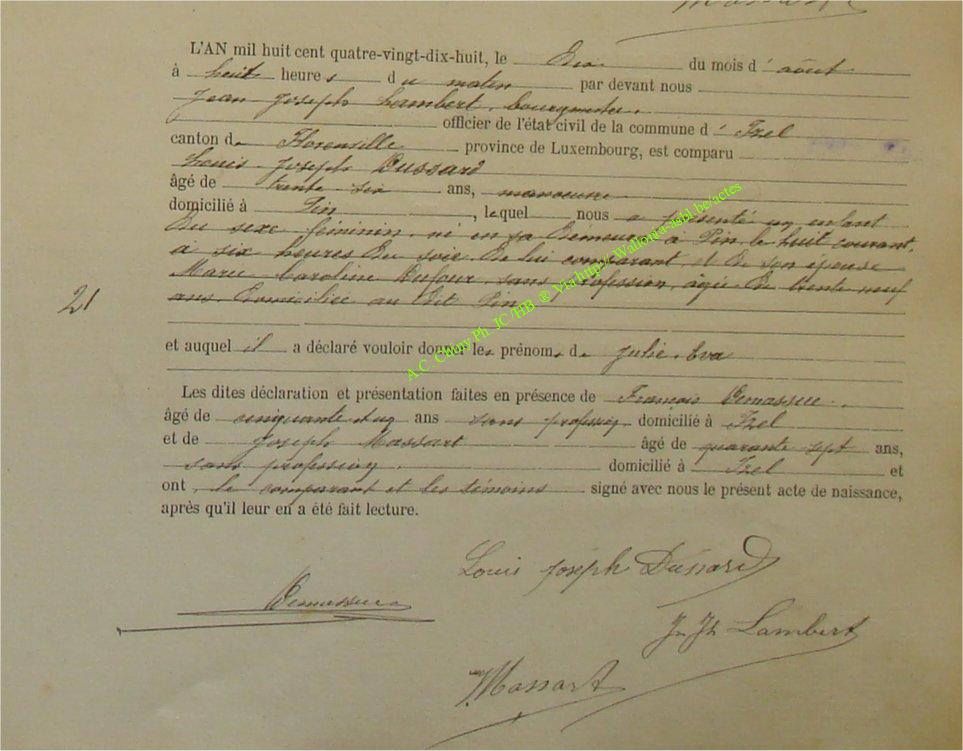 L'AN mil huit cent quatre-vingt-dix-huit, le dix du mois d'août
à huit heures du matin par devant nous
Jean Joseph Lambert, bourgmestre,
officier de l'état civil de la commune d'Izel
canton de Florenville province de Luxembourg, est comparu
Louis Joseph Dussard
âgé de trente six ans, manoeuvre
domicilié à Pin, lequel nous a présenté un enfant
du sexe féminin, né en sa demeure à Pin le huit courant,
à six heures du soir de lui comparant et de son épouse
Marie Caroline Dufour, sans profession, âgée de trente neuf
ans, domiciliée au dit Pin
21
et auquel il a déclaré vouloir donner les prénoms de Julie Eva
Les dites déclaration et présentation faites en présence de François Demasure
âgé de cinquante ans sans profession domicilié à Izel
et de Joseph Massart âgé de quarante sept ans,
sans profession. domicilié à Izel et
ont, le comparant et les témoins signé avec nous le présent acte de naissance,
après qu'il leur en a été fait lecture.
Louis Joseph Dussard
J. Jh Lambert
Massart
A.C. Chiny Ph. JC /HB ® Via http://Wallonia-asbl.be/actes